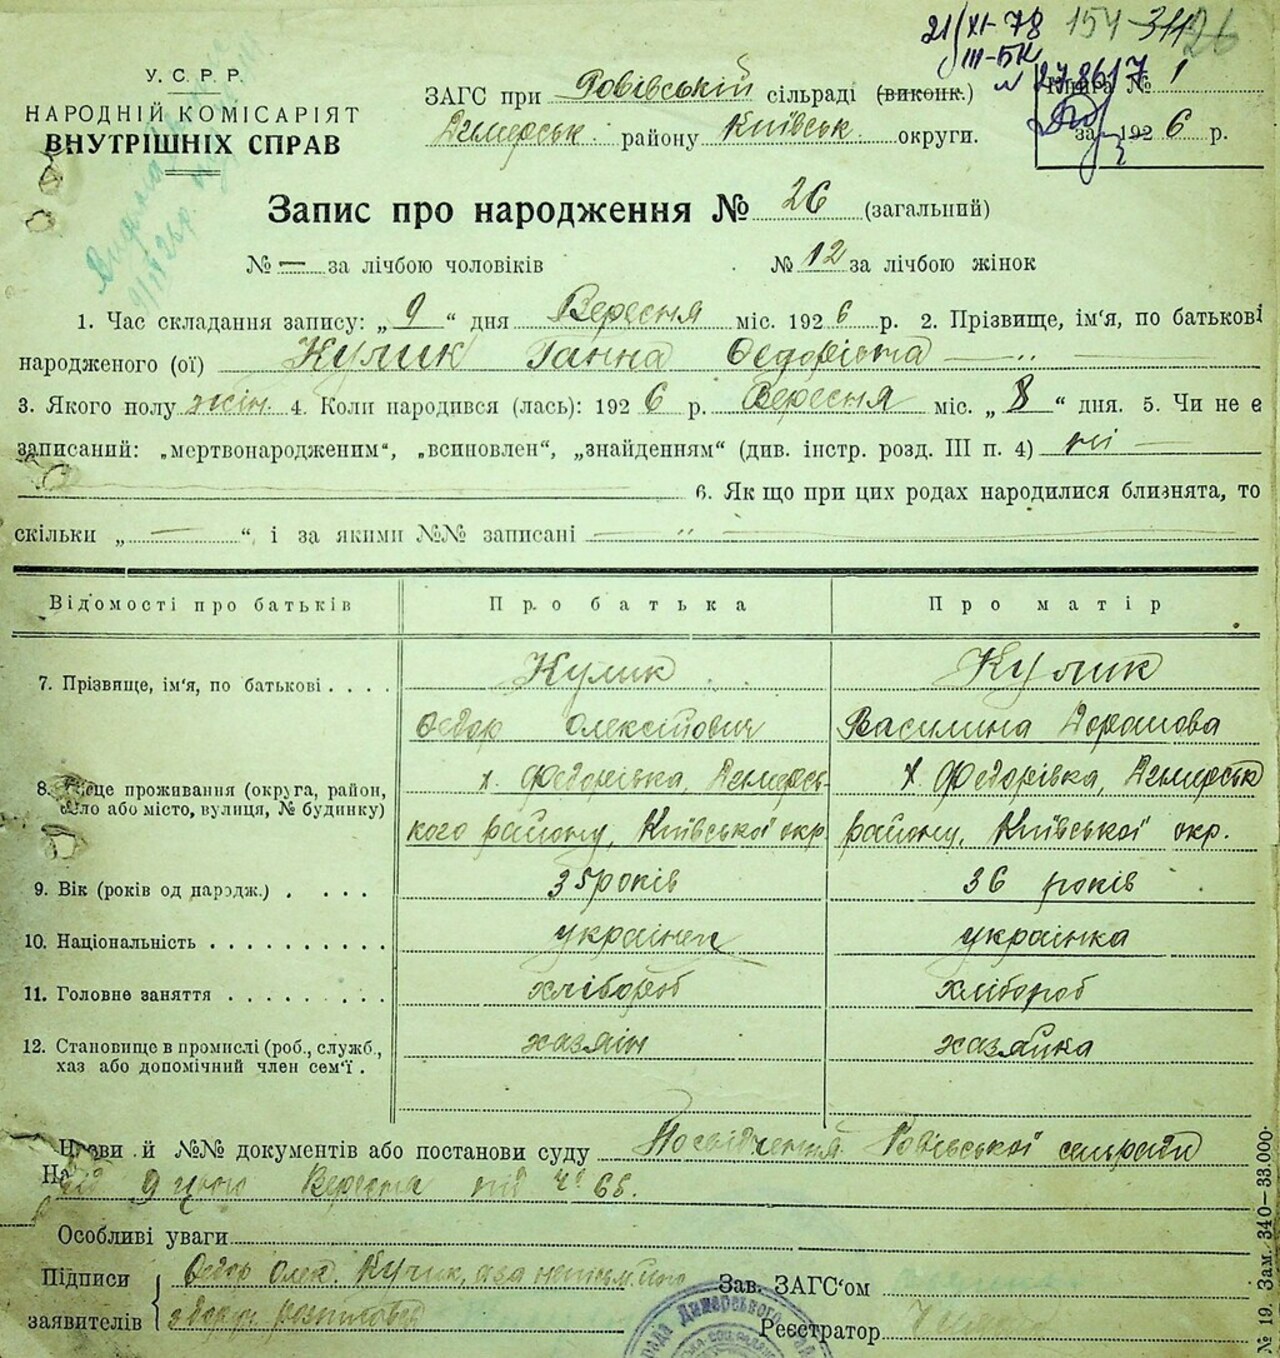 21/XI-78 154-311 26
III-БК
№ 278617
У. С. Р. Р.
НАРОДНІЙ КОМІСАРІЯТ
ВНУТРІШНІХ СПРАВ
ЗАГС при Ровівській сільраді (виконк.)
Димерськ. району Київськ. округи.
Книга № 1
за 1926 р.
Запис про народження № 26 (загальний)
№ — за лічбою чоловіків № 12 за лічбою жінок
1. Час складання запису: „9“ дня Вересня міс. 1926 р. 2. Прізвище, ім'я, по батькові
народженого (ої) Кулик Ганна Федорівна
3. Якого полу жін. 4. Коли народився (лась): 1926 р. Вересня міс. „8“ дня. 5. Чи не є
записаний: „мертвонародженим“, „всиновлен“, „знайденням“ (див. інстр. розд. III п. 4) ні —
6. Як що при цих родах народилися близнята, то
скільки „—“ і за якими №№ записані — „ —
Відомості про батьків Про батька Про матір
7. Прізвище, ім'я, по батькові . . . . Кулик Кулик
Федор Олексійович Василина
8. Місце проживання (округа, район, село або місто, вулиця, № будинку) х. Федорівка, Димерсь- х. Федорівка, Димерськ
кого району, Київської окр. району, Київської окр.
9. Вік (років од народж.) . . . . 35 років 36 років
10. Національність . . . . . . . . . . українец українка
11. Головне заняття . . . . . . . . . хлібороб хлібороб
12. Становище в промислі (роб., служб., хаз або допомічний член сем'ї . хазяїн хазяйка
Назви й №№ документів або постанови суду Посвідчення Ровівської сельради
від 9 цього Вересня під № 65.
Особливі уваги
Підписи Федор Олек. Кулик, а за неписьм. його
заявителів розписався
Зав. ЗАГС'ом
Реєстратор
Димерського
№ 19. Зам. 340—33.000.